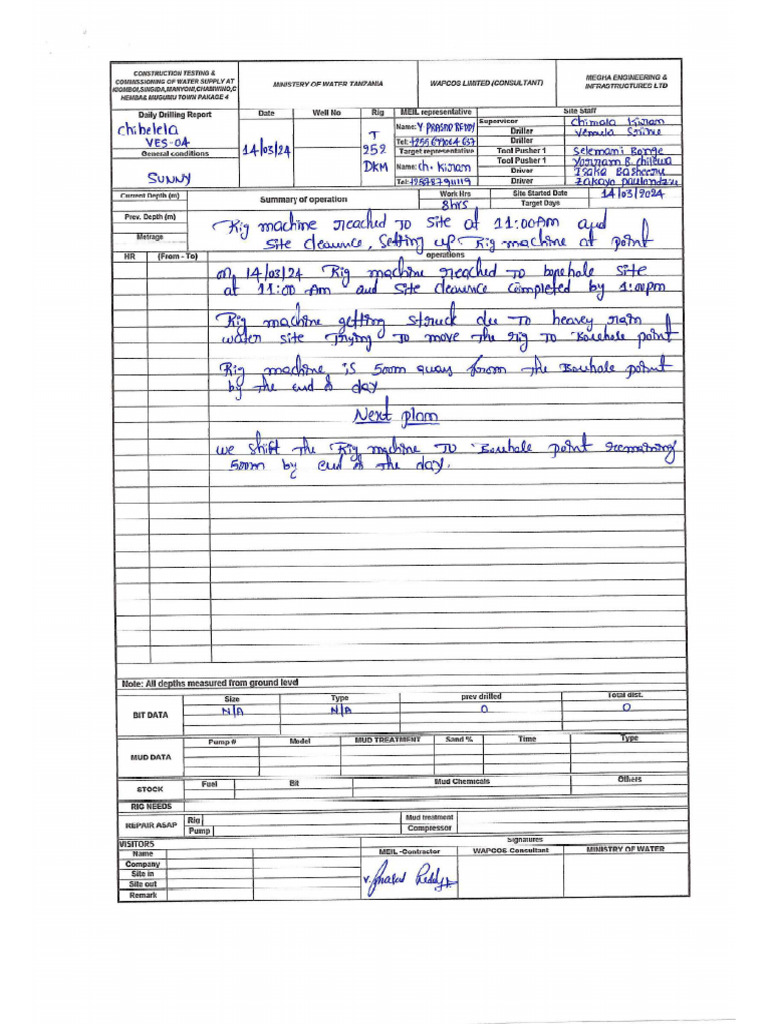 CONSTRUCTION TESTING &
COMMISSIONING OF WATER SUPPLY AT
KIOMBOI,SINGIDA,MANYONI,CHAMWINO,C
HEMBA& MUGUMU TOWN PAKAGE 4
MINISTERY OF WATER TANZANIA
WAPCOS LIMITED (CONSULTANT)
MEGHA ENGINEERING &
INFRASTRUCTURES LTD
Daily Drilling Report
Date
Well No
Rig
MEIL representative
Site Staff
chibelela
VES-04
14/03/24
T
252
DKM
Name: Y PRASAD REDDY
Tel:
Supervisor
Chimala Kiran
Driller
Vemula
Driller
General conditions
SUNNY
Target representative
Name: ch. Kiran
Tel:
Tool Pusher 1
Selemani
Tool Pusher 1
Driver
Driver
Current Depth (m)
Summary of operation
Work Hrs
8hrs
Site Started Date
14/03/2024
Target Days
Prev. Depth (m)
Metrage
Rig machine reached to site at 11:00AM and
site clearnce, setting up Rig machine at point
HR
(From - To)
operations
on 14/03/24 Rig machine reached to borehole site
at 11:00 Am and site clearnce completed by 1:00pm
Rig machine getting struck due to heavey rain
water site Trying to move the rig to Borehole point
Rig machine is 500m away from the Borehole point
by the end of day
Next plan
we shift the Rig machine to Borehole point remaining
500m by end of the day.
Note: All depths measured from ground level
BIT DATA
Size
Type
prev drilled
Total dist.
N/A
N/A
0
0
MUD DATA
Pump #
Model
MUD TREATMENT
Sand %
Time
Type
STOCK
Fuel
Bit
Mud Chemicals
Others
RIG NEEDS
REPAIR ASAP
Rig
Mud treatment
Pump
Compressor
VISITORS
Signatures
Name
MEIL -Contractor
WAPCOS-Consultant
MINISTRY OF WATER
Company
Site in
Site out
Remark
Y. Prasad Reddy